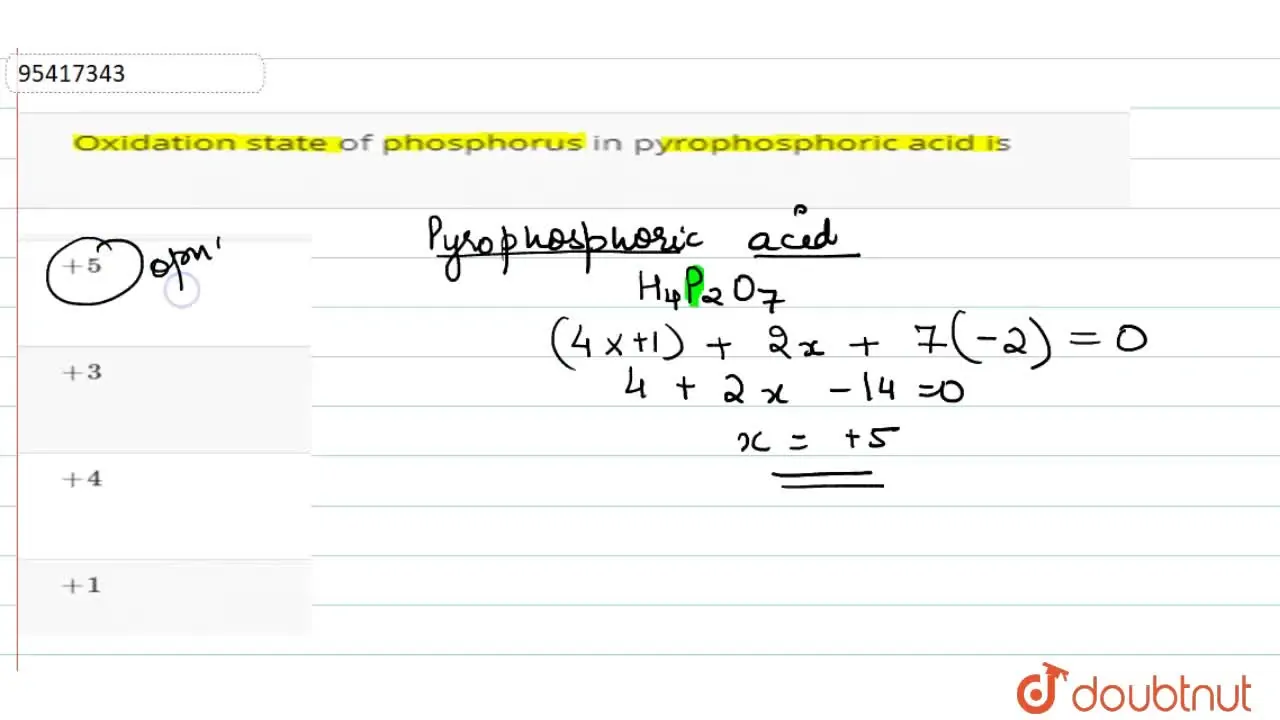 95417343
Oxidation state of phosphorus in pyrophosphoric acid is
Pyrophosphoric acid
+5
H₄P₂O₇
(4×+1) + 2x + 7(-2) = 0
+3
4 + 2x - 14 = 0
x = +5
+4
+1
doubtnut